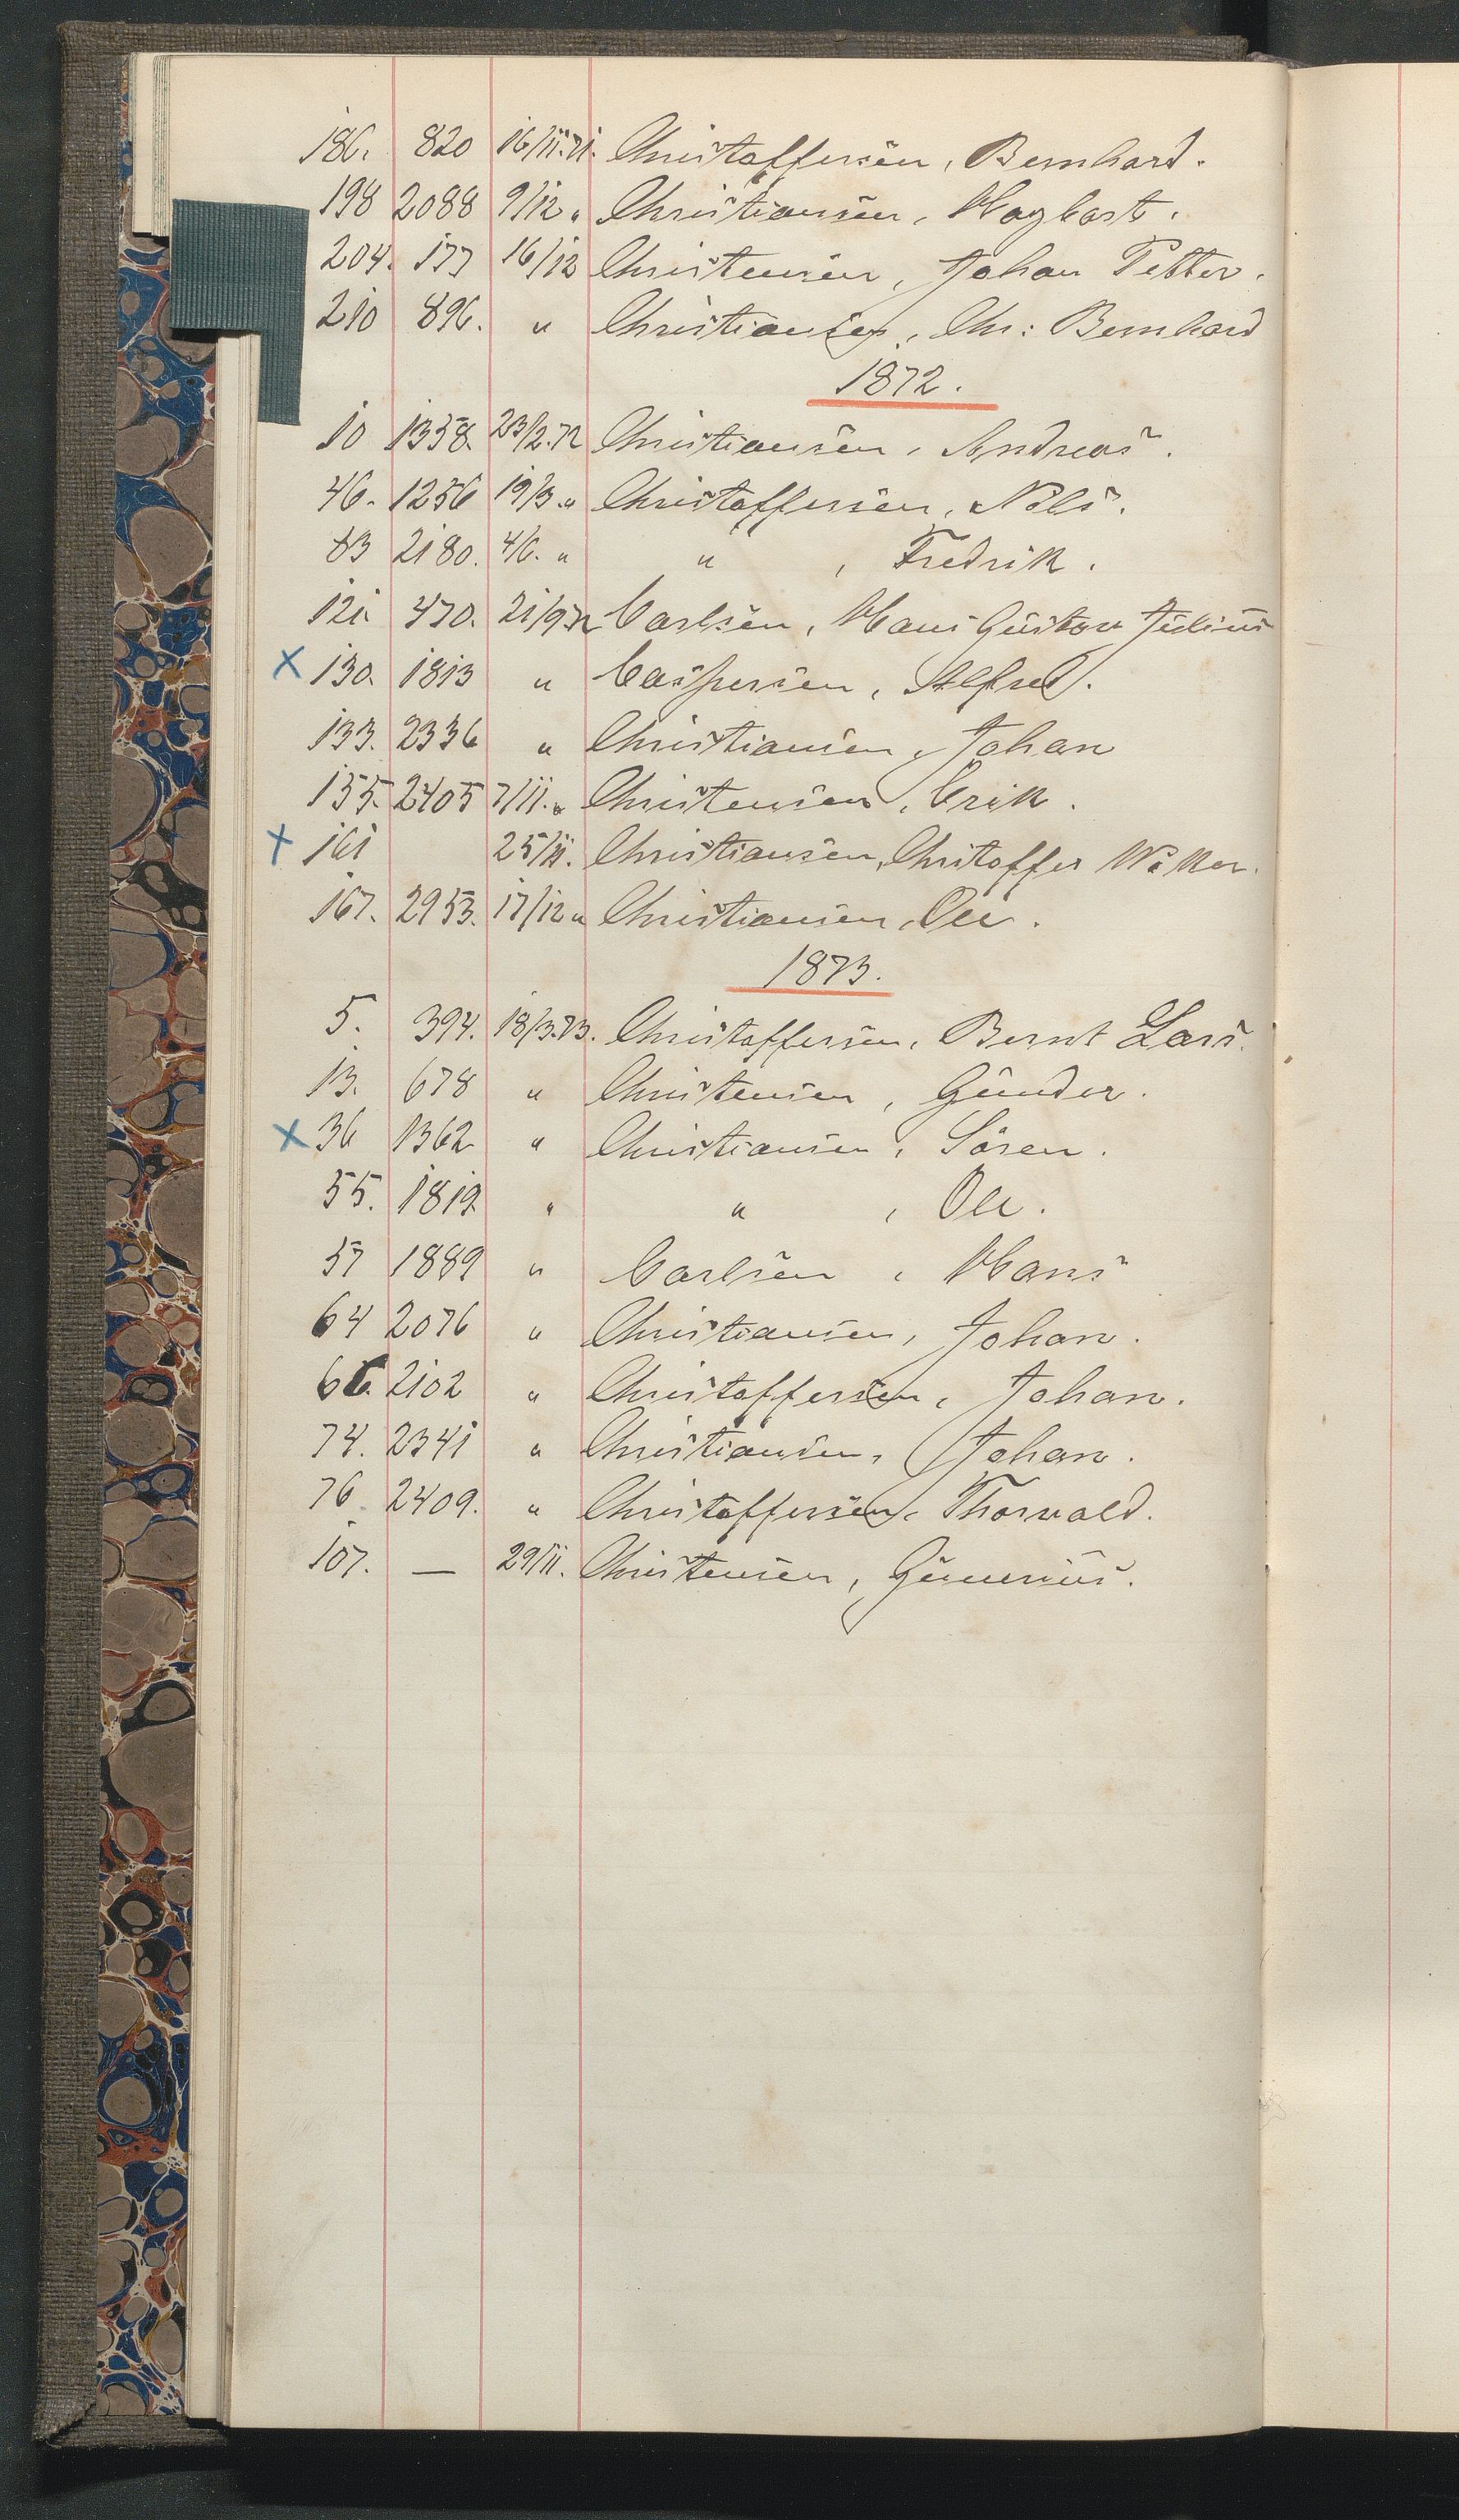 186. 820 16/11.71. Christoffersen, Bernhard.
198 2088 9/12 " Christiansen, Hagbart.
204. 177 16/12 Christensen, Johan Petter.
210 896. " Christiansen, Chr: Bernhard
1872.
10 1358. 23/2.72 Christiansen, Andreas.
46. 1256 19/3 " Christoffersen, Nils.
83 2180. 4/6. " " , Fredrik.
121. 470. 21/9.72 Carlsen, Hans Gustav Julius
x 130. 1813 " Caspersen, Alfred.
133. 2336 " Christiansen, Johan
155. 2405 7/11. " Christensen, Erik.
x 161 25/11. Christiansen, Chritoffer
167. 2953. 17/12 " Christiansen, Ole.
1873.
5. 394. 18/3.73. Christoffersen, Bernt Lars.
13. 678 " Christensen, Gunder.
x 36 1362 " Christiansen, Sören.
55. 1819 " " , Ole.
57 1889 " Carlsen , Hans
64 2076 " Christiansen, Johan.
66. 2102 " Christoffersen, Johan.
74. 2341 " Christiansen, Johan.
76. 2409. " Christoffersen, Thorvald.
107. — 29/11. Christensen, Gunerius.